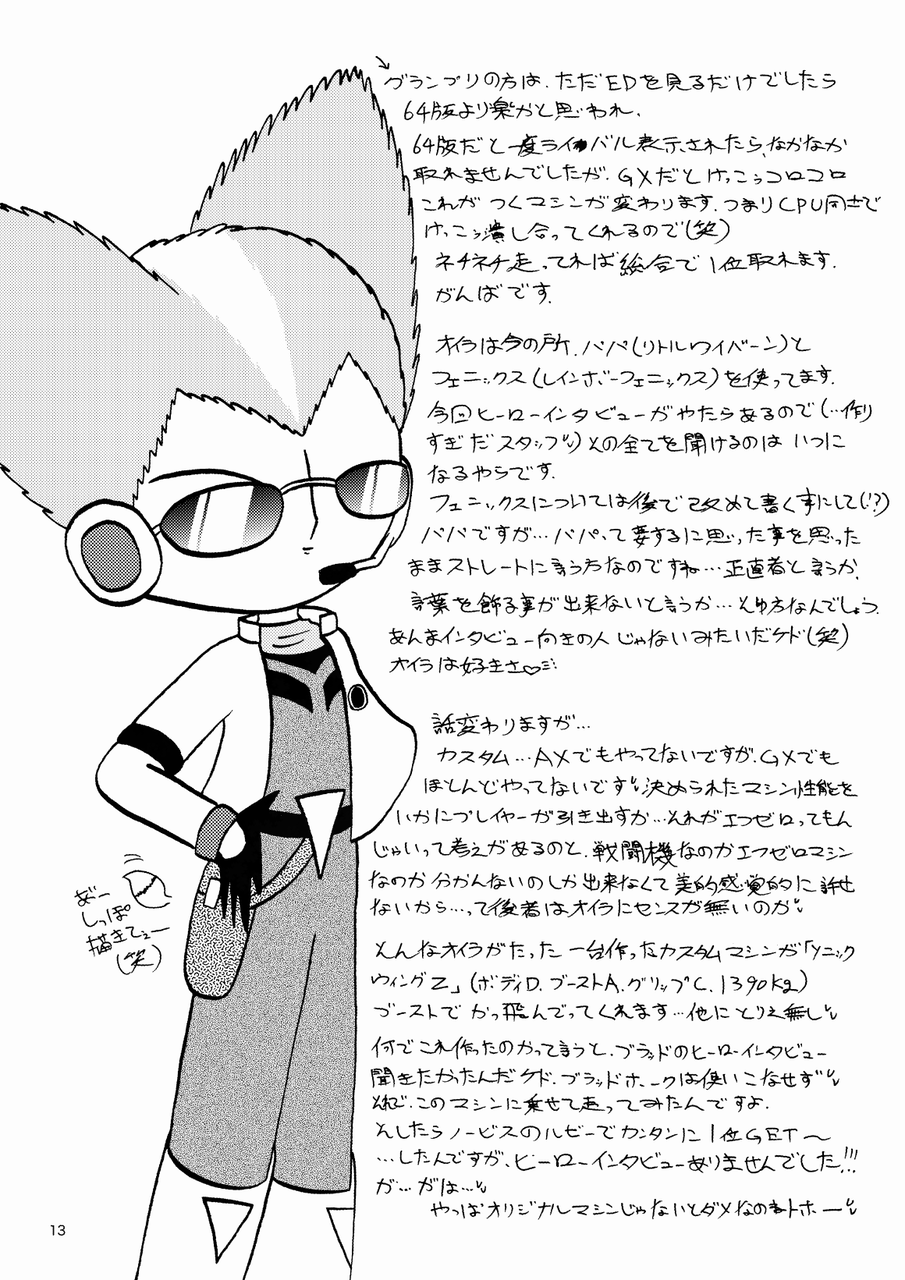 グランプリの方は、ただEDを見るだけでしたら
64版より楽かと思われ、
64版だと一度ライバル表示されたら、なかなか
取れませんでしたが、GXだとけっこうコロコロ
これがつくマシンが変わります。つまりCPU同士で
けっこう潰し合ってくれるので(笑)
ネチネチ走ってれば総合で1位取れます。
がんばです。
オイラは今の所、パパ(リトルワイバーン)と
フェニックス(レインボーフェニックス)を使ってます。
今回ヒーローインタビューがやたらあるので(…作り
すぎだスタッフ)その全てを聞けるのはいつに
なるやらです。
フェニックスについては後で改めて書く事にして(!?)
パパですが…パパって要するに思った事を思った
ままストレートに言う方なのですね…正直者と言うか、
言葉を飾る事が出来ないと言うか…そゆ方なんでしょう。
あんまインタビュー向きの人じゃないみたいだケド(笑)
オイラは好きさ♡
話変わりますが…
カスタム…AXでもやってないですが、GXでも
ほとんどやってないです 決められたマシン性能を
いかにプレイヤーが引き出すか…それがエフゼロってもん
じゃいって考えがあるのと、戦闘機なのかエフゼロマシン
なのか分かんないのしか出来なくて美的感覚的に許せ
ないから…って後者はオイラにセンスが無いのか
そんなオイラがたった一台作ったカスタムマシンが「ソニック
ウィングZ」(ボディD.ブーストA.グリップC.1390kg)
ブーストでかっ飛んでってくれます…他にとりえ無し
何でこれ作ったのかって言うと、ブラッドのヒーローインタビュー
聞きたかったんだケド、ブラッドホークは使いこなせず
それで、このマシンに乗せて走ってみたんですよ。
そしたらノービスのルビーでカンタンに1位GET〜
…したんですが、ヒーローインタビューありませんでした!!!
が…がは…
やっぱオリジナルマシンじゃないとダメなのねトホー
あ゛ー
しっぽ
描きてぇー
(笑)
13